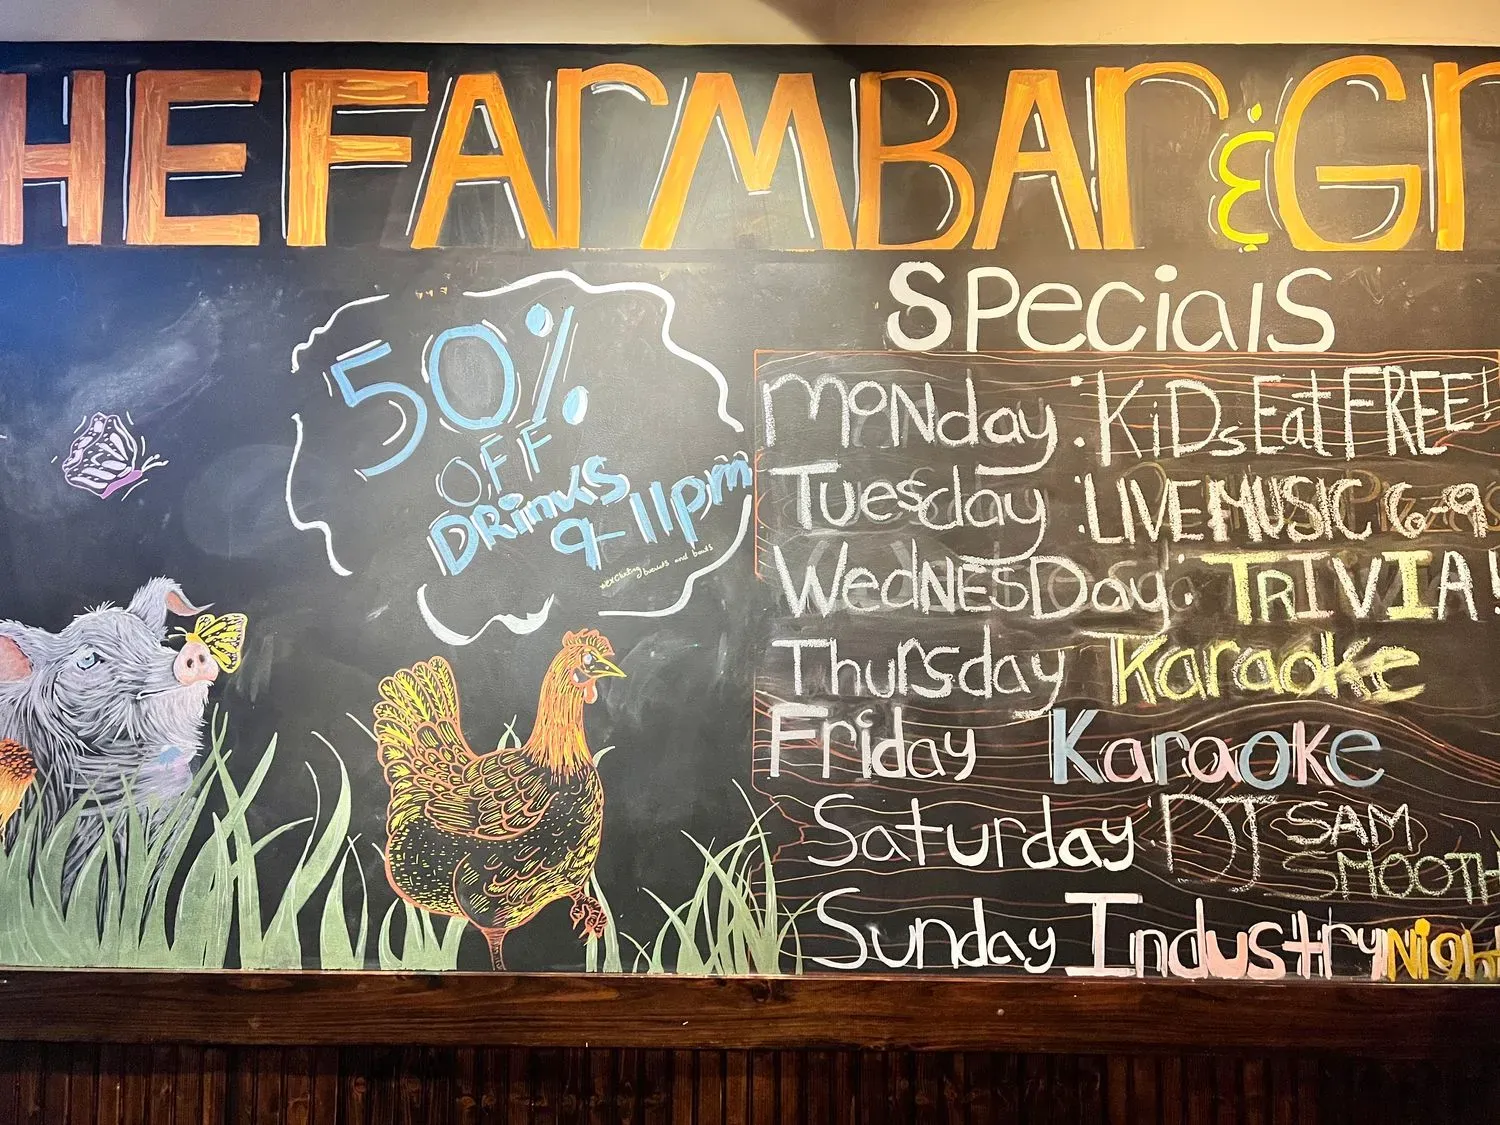 HE FARM BAR & Gr
50%
OFF
DRinks
9-11pm
*excluding buckets and bowls
SPecials
MoNday : KiDs Eat FREE!
Tuesday : LIVE MUSIC 6-9
WedNESDay: TRIVIA!
Thursday Karaoke
Friday Karaoke
Saturday : DJ SAM SMOOTH
Sunday Industry Night